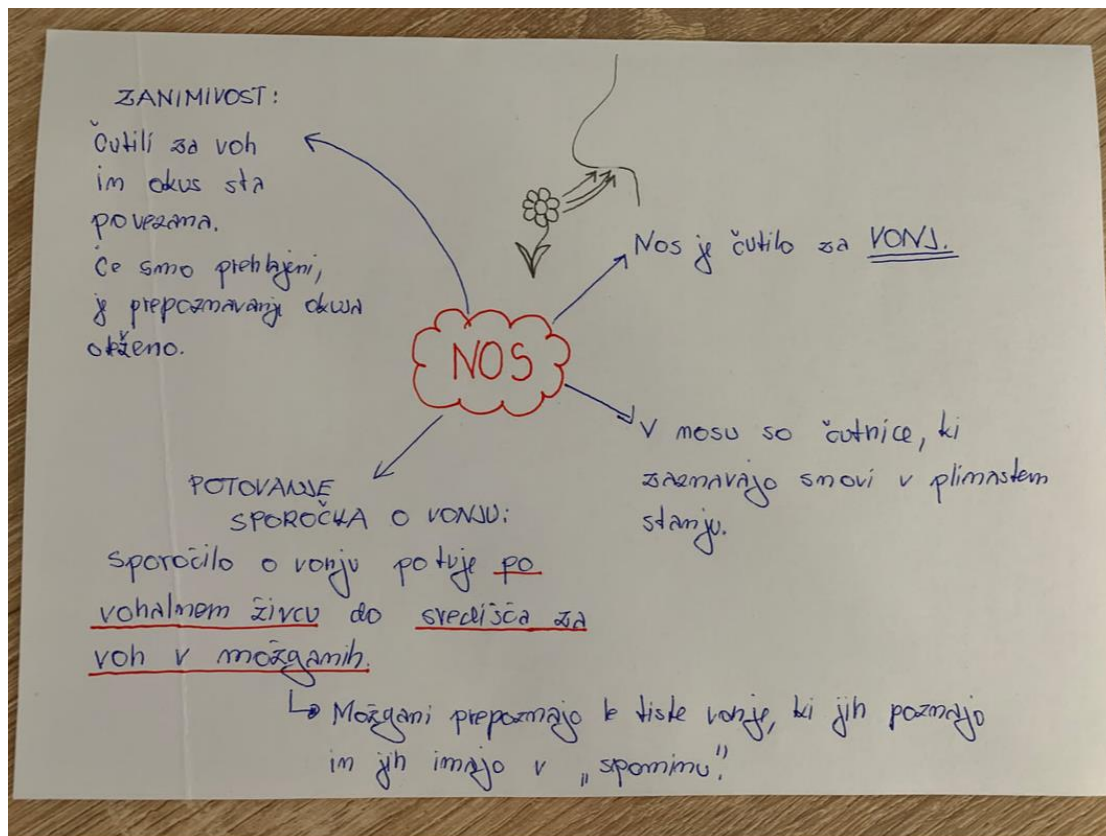 ZANIMIVOST:
Čutili za voh
in okus sta
povezana.
Če smo prehlajeni,
je prepoznavanje okusa
oteženo.
Nos je čutilo za VONJ.
NOS
V nosu so čutnice, ki
zaznavajo snovi v plinastem
stanju.
POTOVANJE
SPOROČILA O VONJU:
Sporočilo o vonju potuje po
vohalnem živcu do središča za
voh v možganih.
Možgani prepoznajo le tiste vonje, ki jih poznajo
in jih imajo v „spominu".